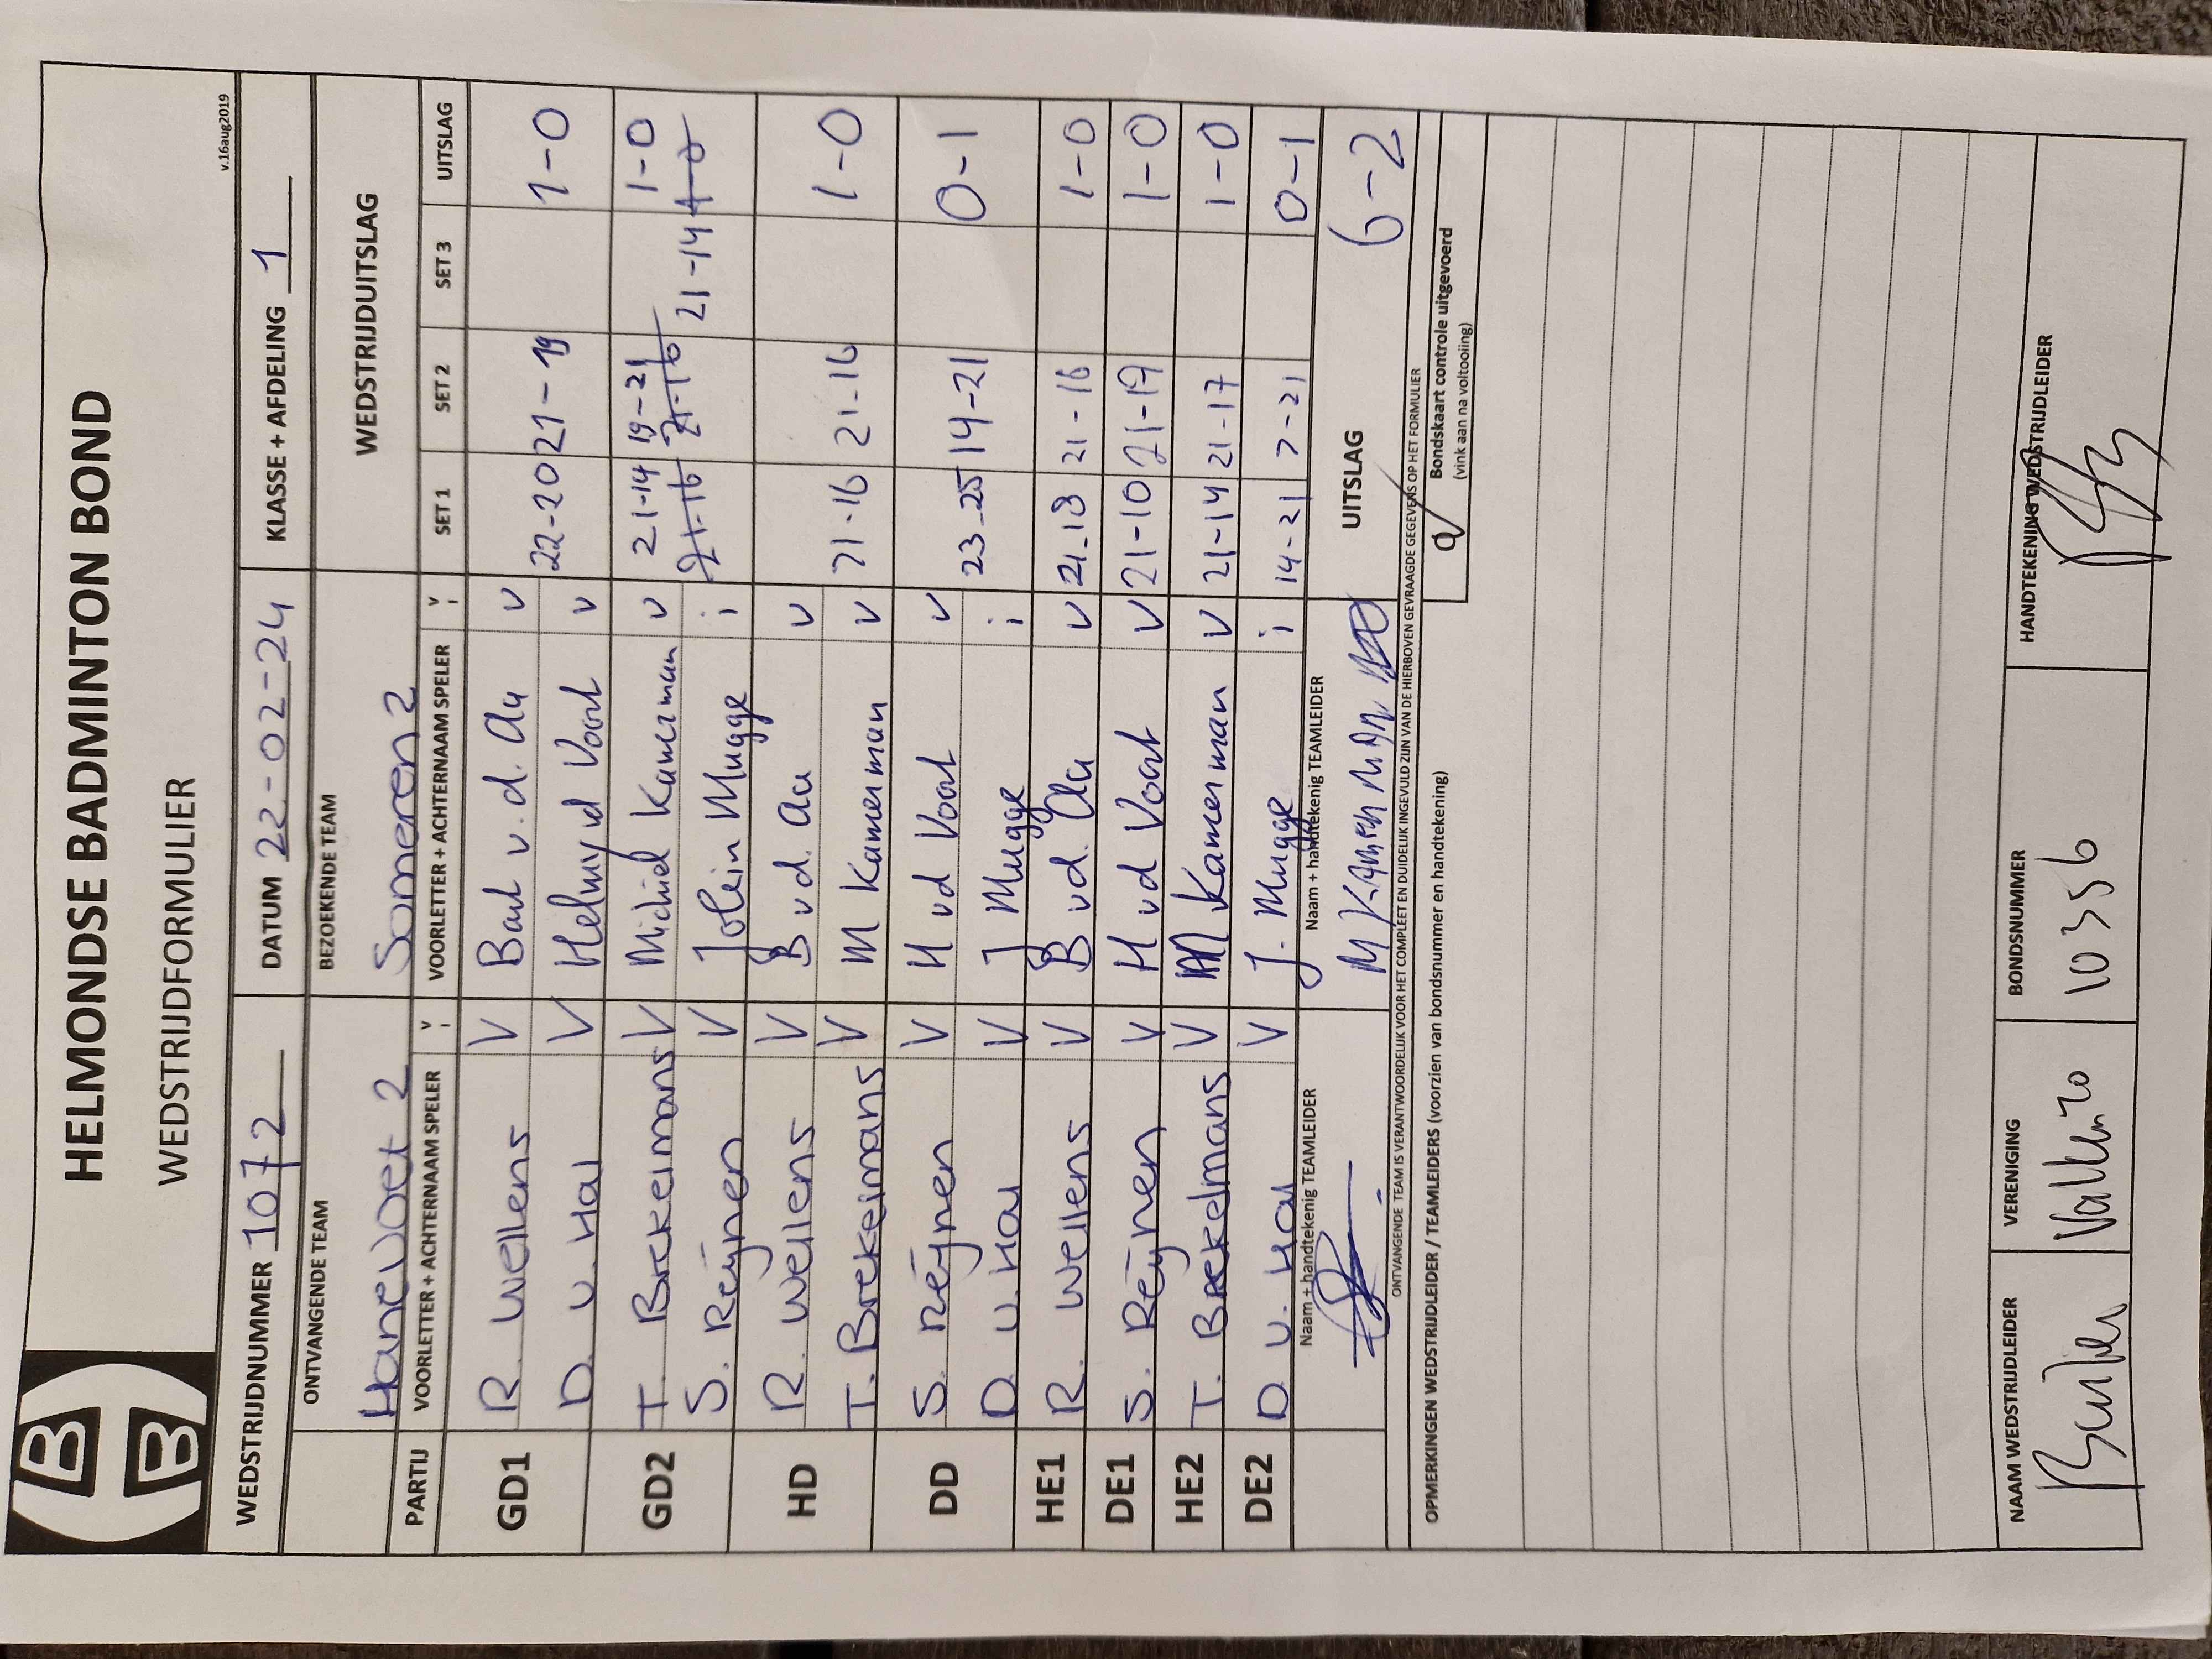 HELMONDSE BADMINTON BOND
WEDSTRIJDFORMULIER
v.16aug2019
WEDSTRIJDNUMMER 1072 DATUM 22-02-24 KLASSE + AFDELING 1
ONTVANGENDE TEAM BEZOEKENDE TEAM WEDSTRIJDUITSLAG
Hanevoet 2 Someren 2
PARTIJ VOORLETTER + ACHTERNAAM SPELER V i VOORLETTER + ACHTERNAAM SPELER V i SET 1 SET 2 SET 3 UITSLAG
GD1 R. Wellens V Bart v.d. Aa v
D. v. Hal V Helmy vd Voort v 22-20 21-19 1-0
GD2 T. Brekelmans V Michiel Kamerman v 21-14 19-21 1-0
S. Reijnen V Jolein Mugge i 21-16 21-16 21-14 1-0
HD R. Wellens V B vd. Aa v
T. Brekelmans V M Kamerman v 21-16 21-16 1-0
DD S. Reijnen V H vd Voort v
D. v. Hal V J Mugge i 23-25 14-21 0-1
HE1 R. Wellens V B vd. Aa v 21-18 21-16 1-0
DE1 S. Reijnen V H vd Voort V 21-10 21-19 1-0
HE2 T. Brekelmans V M Kamerman V 21-14 21-17 1-0
DE2 D. v. Hal V J. Mugge i 14-21 7-21 0-1
Naam + handtekenig TEAMLEIDER Naam + handtekenig TEAMLEIDER UITSLAG 6-2
M KAMERMAN
ONTVANGENDE TEAM IS VERANTWOORDELIJK VOOR HET COMPLEET EN DUIDELIJK INGEVULD ZIJN VAN DE HIERBOVEN GEVRAAGDE GEGEVENS OP HET FORMULIER
OPMERKINGEN WEDSTRIJDLEIDER / TEAMLEIDERS (voorzien van bondsnummer en handtekening)
Bondskaart controle uitgevoerd
(vink aan na voltooiing)
NAAM WEDSTRIJDLEIDER VERENIGING BONDSNUMMER HANDTEKENING WEDSTRIJDLEIDER
10356